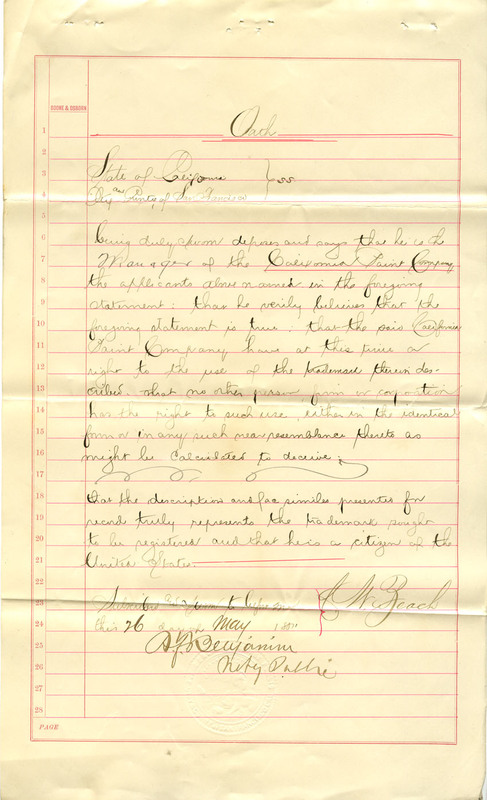 BOONE & OSBORN
1
Oath
2
3
State of California
4
City and County of San Francisco } ss
5
6
being duly sworn deposes and says that he is the
7
Manager of the California Paint Company
8
the applicants above named in the foregoing
9
statement; that he verily believes that the
10
foregoing statement is true; that the said California
11
Paint Company have at this time a
12
right to the use of the trademark therein des-
13
cribed. that no other person, firm or corporation
14
has the right to such use, either in the identical
15
form or in any such near resemblance thereto as
16
might be calculated to deceive;
17
18
that the description and fac similes presented for
19
record truly represents the trademark sought
20
to be registered and that he is a citizen of the
21
United States
22
J W Beach
23
Subscribed and sworn to before me
24
this 26 day of May
25
Benjamin
26
Notary Public
27
28
PAGE